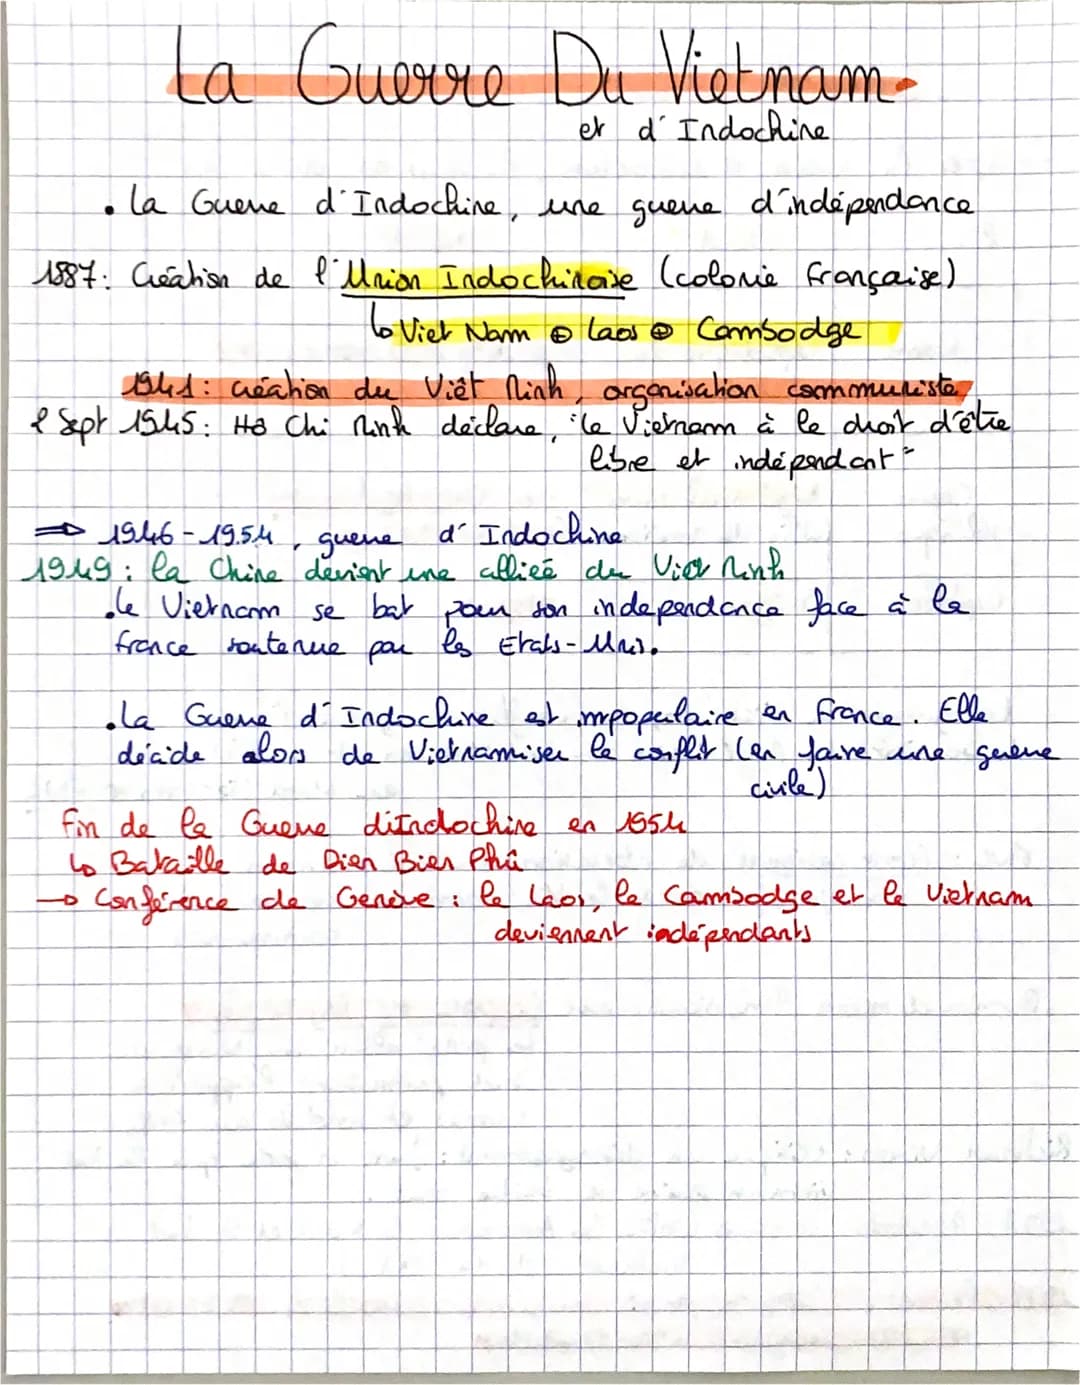 La Guerre Du Vietnam
et d'Indochine
• La Guerre d'Indochine, une guerre d'indépendance
1887: Création de l'Union Indochinoise (colonie française)
↳ Viet Nam ⊕ Laos ⊕ Cambodge
1941: création du Viêt Minh, organisation communiste,
2 Sept 1945: Hô Chi Minh déclare, "Le Vietnam à le droit d'être
libre et indépendant"
⇒ 1946-1954, guerre d'Indochine
1949: la Chine devient une alliée du Viet Minh
• Le Vietnam se bat pour son independance face à la
france soutenue par les Etats-Unis.
• La Guerre d'Indochine est impopulaire en France. Elle
décide alors de Vietnamiser le conflit (en faire une guerre
civile)
fin de la Guerre d'Indochine en 1954
↳ Bataille de Dien Bien Phû
→ Conférence de Genève: le Laos, le Cambodge et le Vietnam
deviennent indépendants